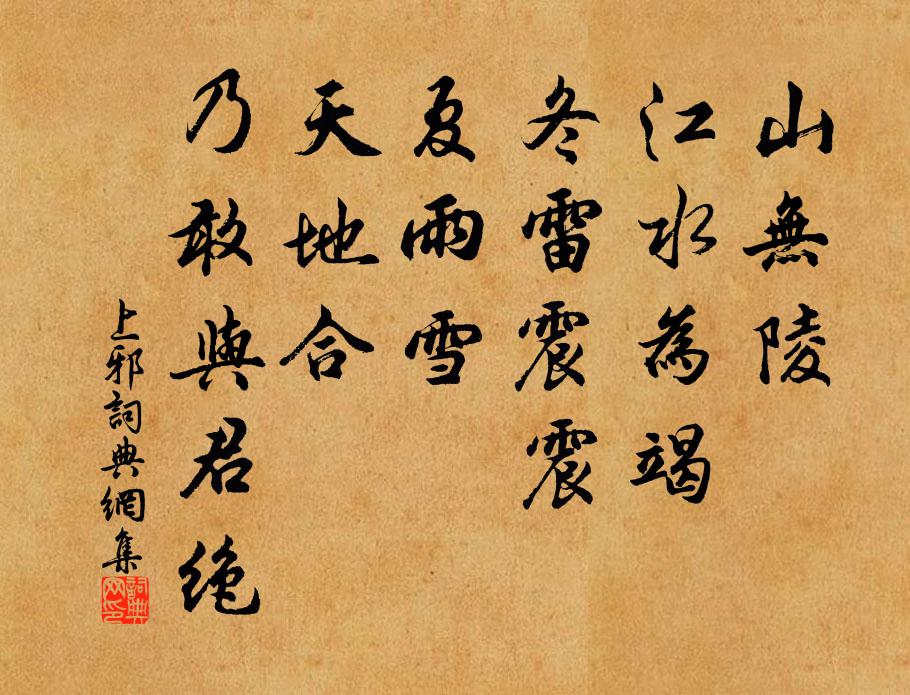 山無陵
江水為竭
冬雷震震
夏雨雪
天地合
乃敢與君絕
上邪詞典網集
詞典
网印